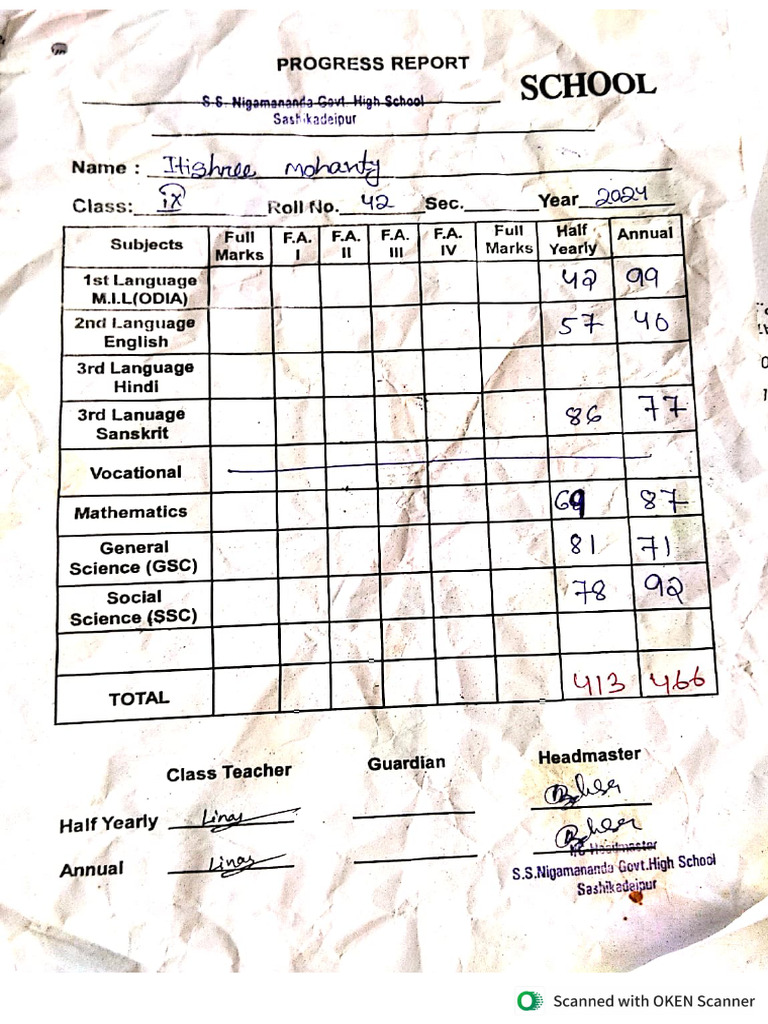 PROGRESS REPORT
SCHOOL
S.S. Nigamananda Govt. High School
Sashikadeipur
Name : Itishree Mohanty
Class: IX Roll No. 42 Sec. Year 2024
Subjects Full Marks F.A. I F.A. II F.A. III F.A. IV Full Marks Half Yearly Annual
1st Language M.I.L(ODIA) 42 99
2nd Language English 57 40
3rd Language Hindi
3rd Lanuage Sanskrit 86 77
Vocational
Mathematics 69 87
General Science (GSC) 81 71
Social Science (SSC) 78 92
TOTAL 413 466
Class Teacher Guardian Headmaster
Half Yearly
Annual
Headmaster
S.S.Nigamananda Govt.High School
Sashikadeipur
Scanned with OKEN Scanner